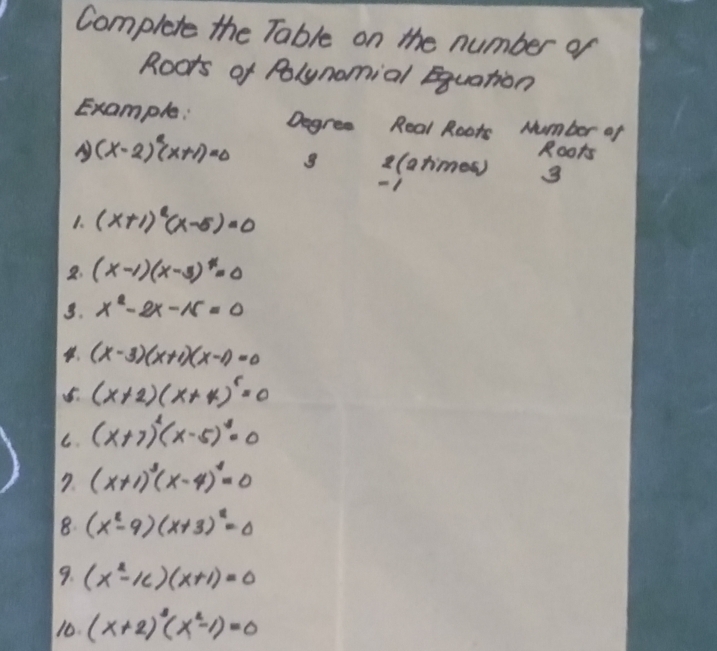 Complete the Table on the number of
Roots of Polynomial Equation
Example: Degree Real Roots Number of Roots
A) (x-2)²(x+1)=0 3 2(2 times) 3
-1
1. (x+1)²(x-5)=0
2. (x-1)(x-3)⁴=0
3. x²-2x-15=0
4. (x-3)(x+1)(x-1)=0
5. (x+2)(x+4)⁵=0
6. (x+7)²(x-5)⁴=0
7. (x+1)³(x-4)⁴=0
8. (x²-9)(x+3)²=0
9. (x²-16)(x+1)=0
10. (x+2)³(x²-1)=0